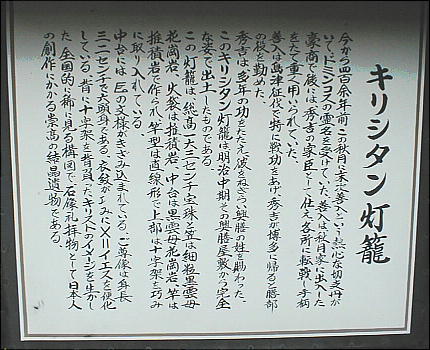 キリシタン灯籠
今から四百余年前この秋月に末次善入という熱心な切支丹が
いて、ドミンゴスの霊名を受けていた。善入は秋月家に出入した
豪商で後には秀吉の家臣として仕え各所に転戦し手柄
をたて重く用いられていた。
善入は島津征伐で特に戦功をあげ、秀吉が博多に帰ると膳部
の役を勤めた。
秀吉は多年の功をたたえ彼をねぎらい興膳の姓を賜わった。
このキリシタン灯籠は明治中期その興膳屋敷から完全
な姿で出土したものである。
この灯籠は、総高一六二センチ宝珠と笠は細粒黒雲母
花崗岩、火袋は推積岩、中台は黒雲母花崗岩、竿は
推積岩で作られ竿型は直線形で上部は十字架を巧み
に取り入れている。
中台には、
の文様がきざみ込まれている。ご尊像は身長
三二センチで六頭身である。衣紋が巧みに
イエスを便化
している。背に十字架を背負ったキリストのイメージを生かし
た全国的に稀に見る構図で石像礼拝物として日本人
の創作にかかる崇高の結晶遺物である。